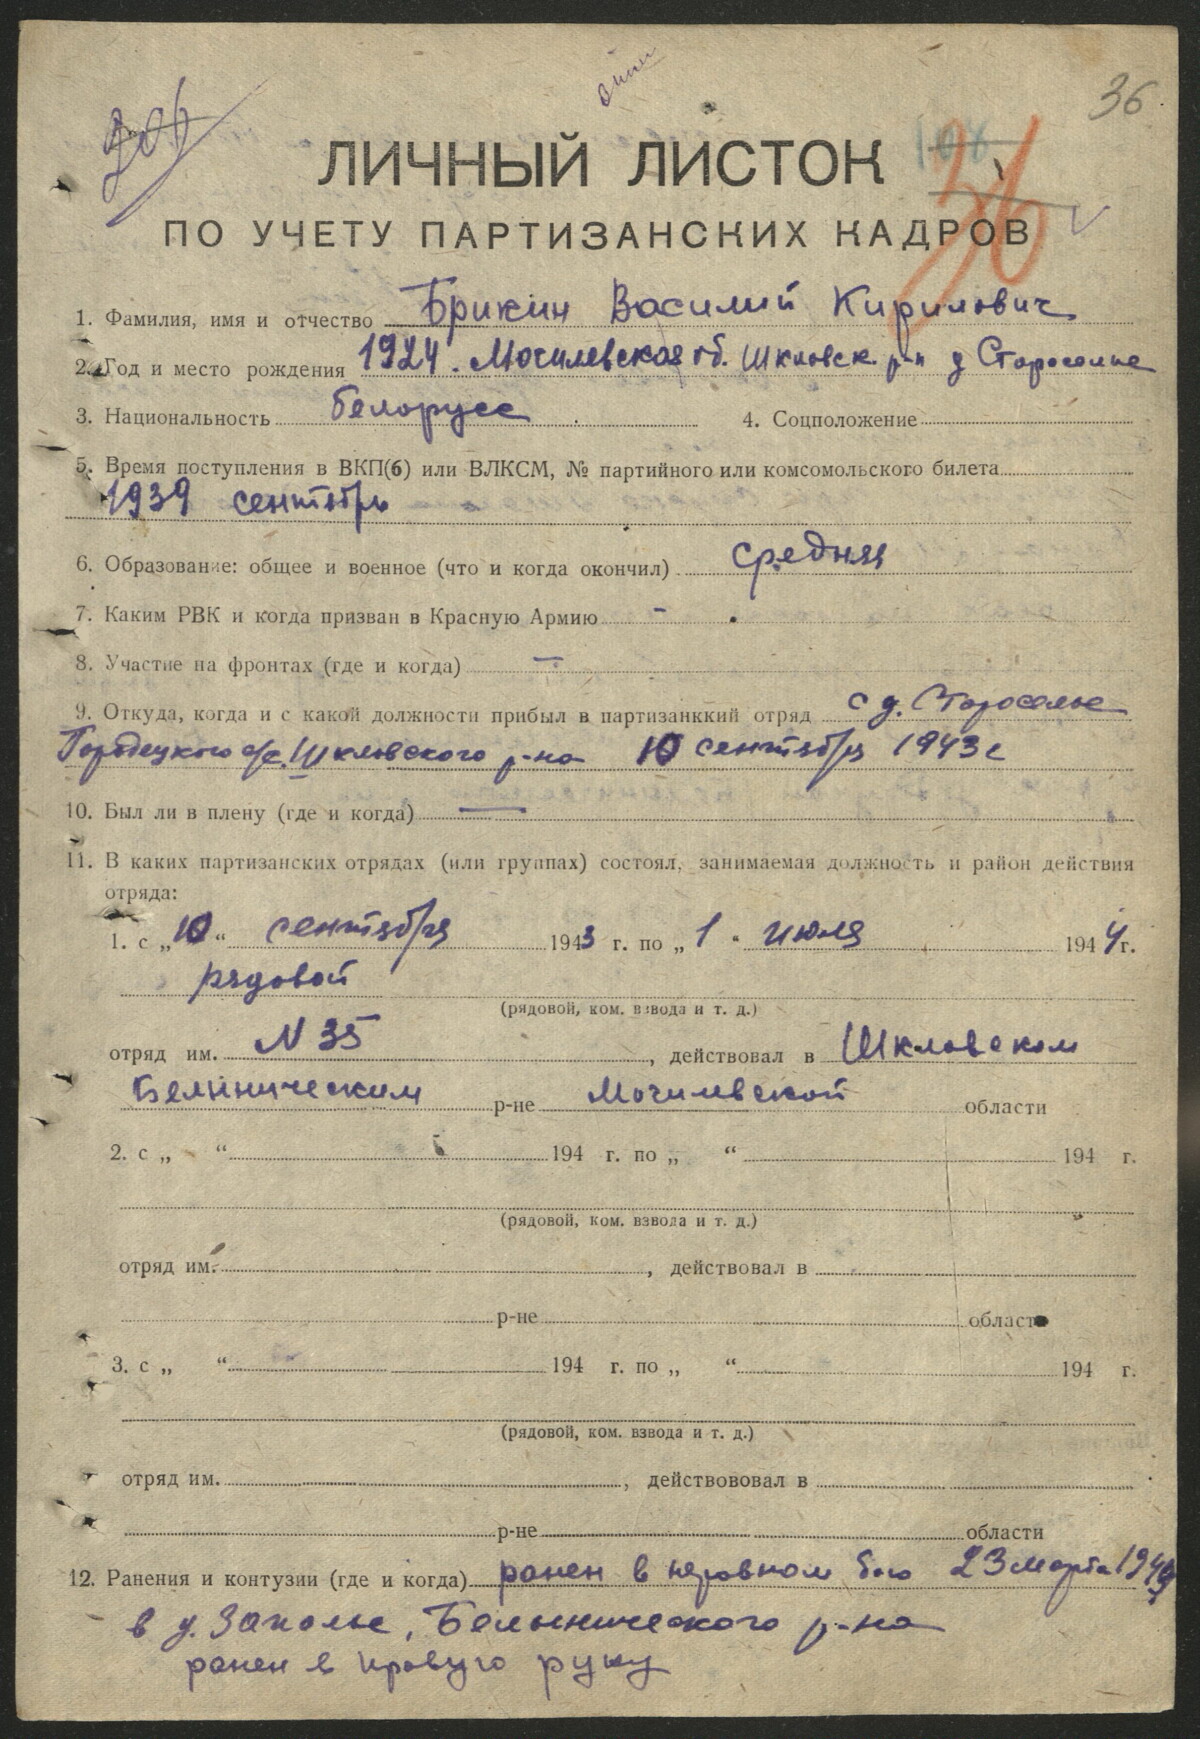 36
ЛИЧНЫЙ ЛИСТОК
ПО УЧЕТУ ПАРТИЗАНСКИХ КАДРОВ
1. Фамилия, имя и отчество Брикин Василий Кирилович
2. Год и место рождения 1924. Могилевская об. Шкловск. р-н д Староселье
3. Национальность белорусс 4. Соцположение
5. Время поступления в ВКП(б) или ВЛКСМ, № партийного или комсомольского билета
1939 сентябрь
6. Образование: общее и военное (что и когда окончил) средняя
7. Каким РВК и когда призван в Красную Армию –
8. Участие на фронтах (где и когда) –
9. Откуда, когда и с какой должности прибыл в партизанккий отряд с д. Староселье
Городецкого с/с. Шкловского р-на 10 сентября 1943 г
10. Был ли в плену (где и когда) —
11. В каких партизанских отрядах (или группах) состоял, занимаемая должность и район действия
отряда:
1. с „10“ сентября 1943 г. по „1“ июля 1944 г.
рядовой
(рядовой, ком. взвода и т. д.)
отряд им. N 35, действовал в Шкловском
Белыническим р-не Могилевской области
2. с „ “ 194 г. по „ “ 194 г.
(рядовой, ком. взвода и т. д.)
отряд им. , действовал в
р-не области
3. с „ “ 194 г. по „ “ 194 г.
(рядовой, ком. взвода и т. д.)
отряд им. , действововал в
р-не области
12. Ранения и контузии (где и когда) ранен в неровном бою 23 марта 1944
в д. Заполье, Белынического р-на
ранен в правую руку